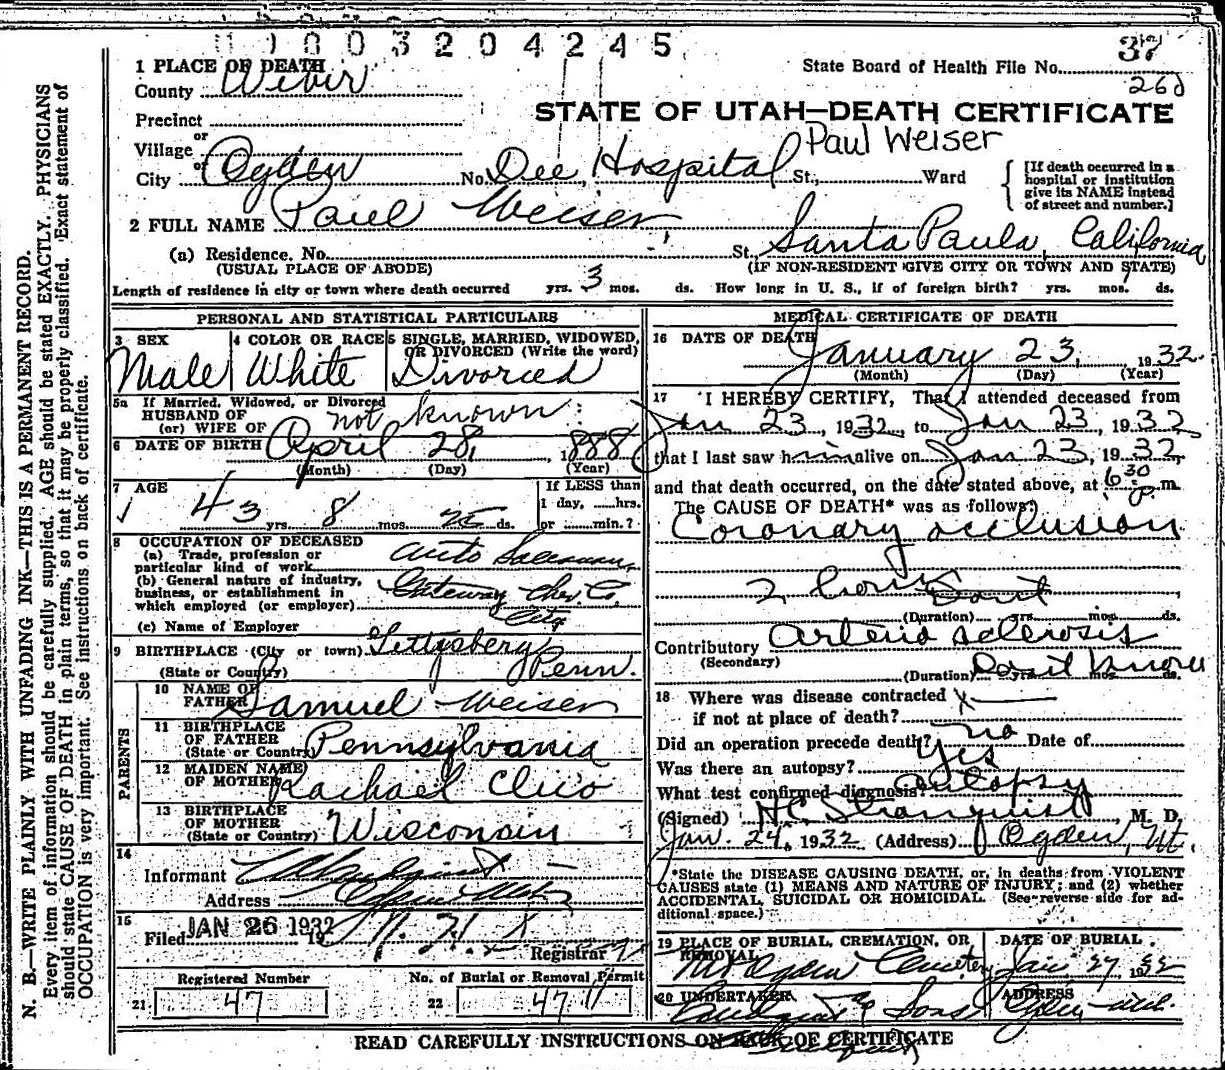 1 0 0 3 2 0 4 2 4 5
37
260
1 PLACE OF DEATH
State Board of Health File No.
County Weber
STATE OF UTAH—DEATH CERTIFICATE
Precinct
Paul Weiser
or
Village
or
City Ogden No. Dee Hospital St., Ward
[If death occurred in a hospital or institution give its NAME instead of street and number.]
2 FULL NAME Paul Weiser
(a) Residence. No. St., Santa Paula, California
(USUAL PLACE OF ABODE) (IF NON-RESIDENT GIVE CITY OR TOWN AND STATE)
Length of residence in city or town where death occurred yrs. 3 mos. ds. How long in U. S., if of foreign birth? yrs. mos. ds.
PERSONAL AND STATISTICAL PARTICULARS
3 SEX 4 COLOR OR RACE 5 SINGLE, MARRIED, WIDOWED,
OR DIVORCED (Write the word)
Male White Divorced
5a If Married, Widowed, or Divorced
HUSBAND OF
(or) WIFE OF not known
6 DATE OF BIRTH April 28, 1888
(Month) (Day) (Year)
7 AGE If LESS than
1 day, hrs.
43 yrs. 8 mos. 25 ds. or min.?
8 OCCUPATION OF DECEASED
(a) Trade, profession or
particular kind of work Auto Salesman
(b) General nature of industry,
business, or establishment in
which employed (or employer) Gateway Chev. Co.
City
(c) Name of Employer
9 BIRTHPLACE (City or town) Gettysberg
Penn.
(State or Country)
PARENTS
10 NAME OF
FATHER Samuel Weiser
11 BIRTHPLACE
OF FATHER
(State or Country) Pennsylvania
12 MAIDEN NAME
OF MOTHER Rachael
13 BIRTHPLACE
OF MOTHER
(State or Country) Wisconsin
14
Informant
Address Ogden Utah
15
Filed JAN 26 1932 19
Registrar
Registered Number No. of Burial or Removal Permit
21 47 22 47
MEDICAL CERTIFICATE OF DEATH
16 DATE OF DEATH
January 23, 1932.
(Month) (Day) (Year)
17 I HEREBY CERTIFY, That I attended deceased from
Jan 23, 1932, to Jan 23, 1932
that I last saw him alive on Jan 23, 1932,
and that death occurred, on the date stated above, at 6 30 p. m.
The CAUSE OF DEATH* was as follows:
Coronary occlusion
2
(Duration) yrs. mos. ds.
Contributory Arterio sclerosis
(Secondary)
(Duration) Dont know yrs. mos. ds.
18 Where was disease contracted
if not at place of death?
Did an operation precede death? no Date of
Was there an autopsy? Yes
What test confirmed diagnosis? Autopsy
(Signed) H.C. Stranquist, M. D.
Jan. 24, 1932 (Address) Ogden, Ut.
*State the DISEASE CAUSING DEATH, or, in deaths from VIOLENT
CAUSES state (1) MEANS AND NATURE OF INJURY; and (2) whether
ACCIDENTAL, SUICIDAL OR HOMICIDAL. (See reverse side for ad-
ditional space.)
19 PLACE OF BURIAL, CREMATION, OR DATE OF BURIAL
REMOVAL
Mt Ogden Cemetery Jan. 27, 1932
20 UNDERTAKER ADDRESS
& Sons Ogden
READ CAREFULLY INSTRUCTIONS ON BACK OF CERTIFICATE
N. B.—WRITE PLAINLY WITH UNFADING INK—THIS IS A PERMANENT RECORD.
Every item of information should be carefully supplied. AGE should be stated EXACTLY. PHYSICIANS
should state CAUSE OF DEATH in plain terms, so that it may be properly classified. Exact statement of
OCCUPATION is very important. See instructions on back of certificate.